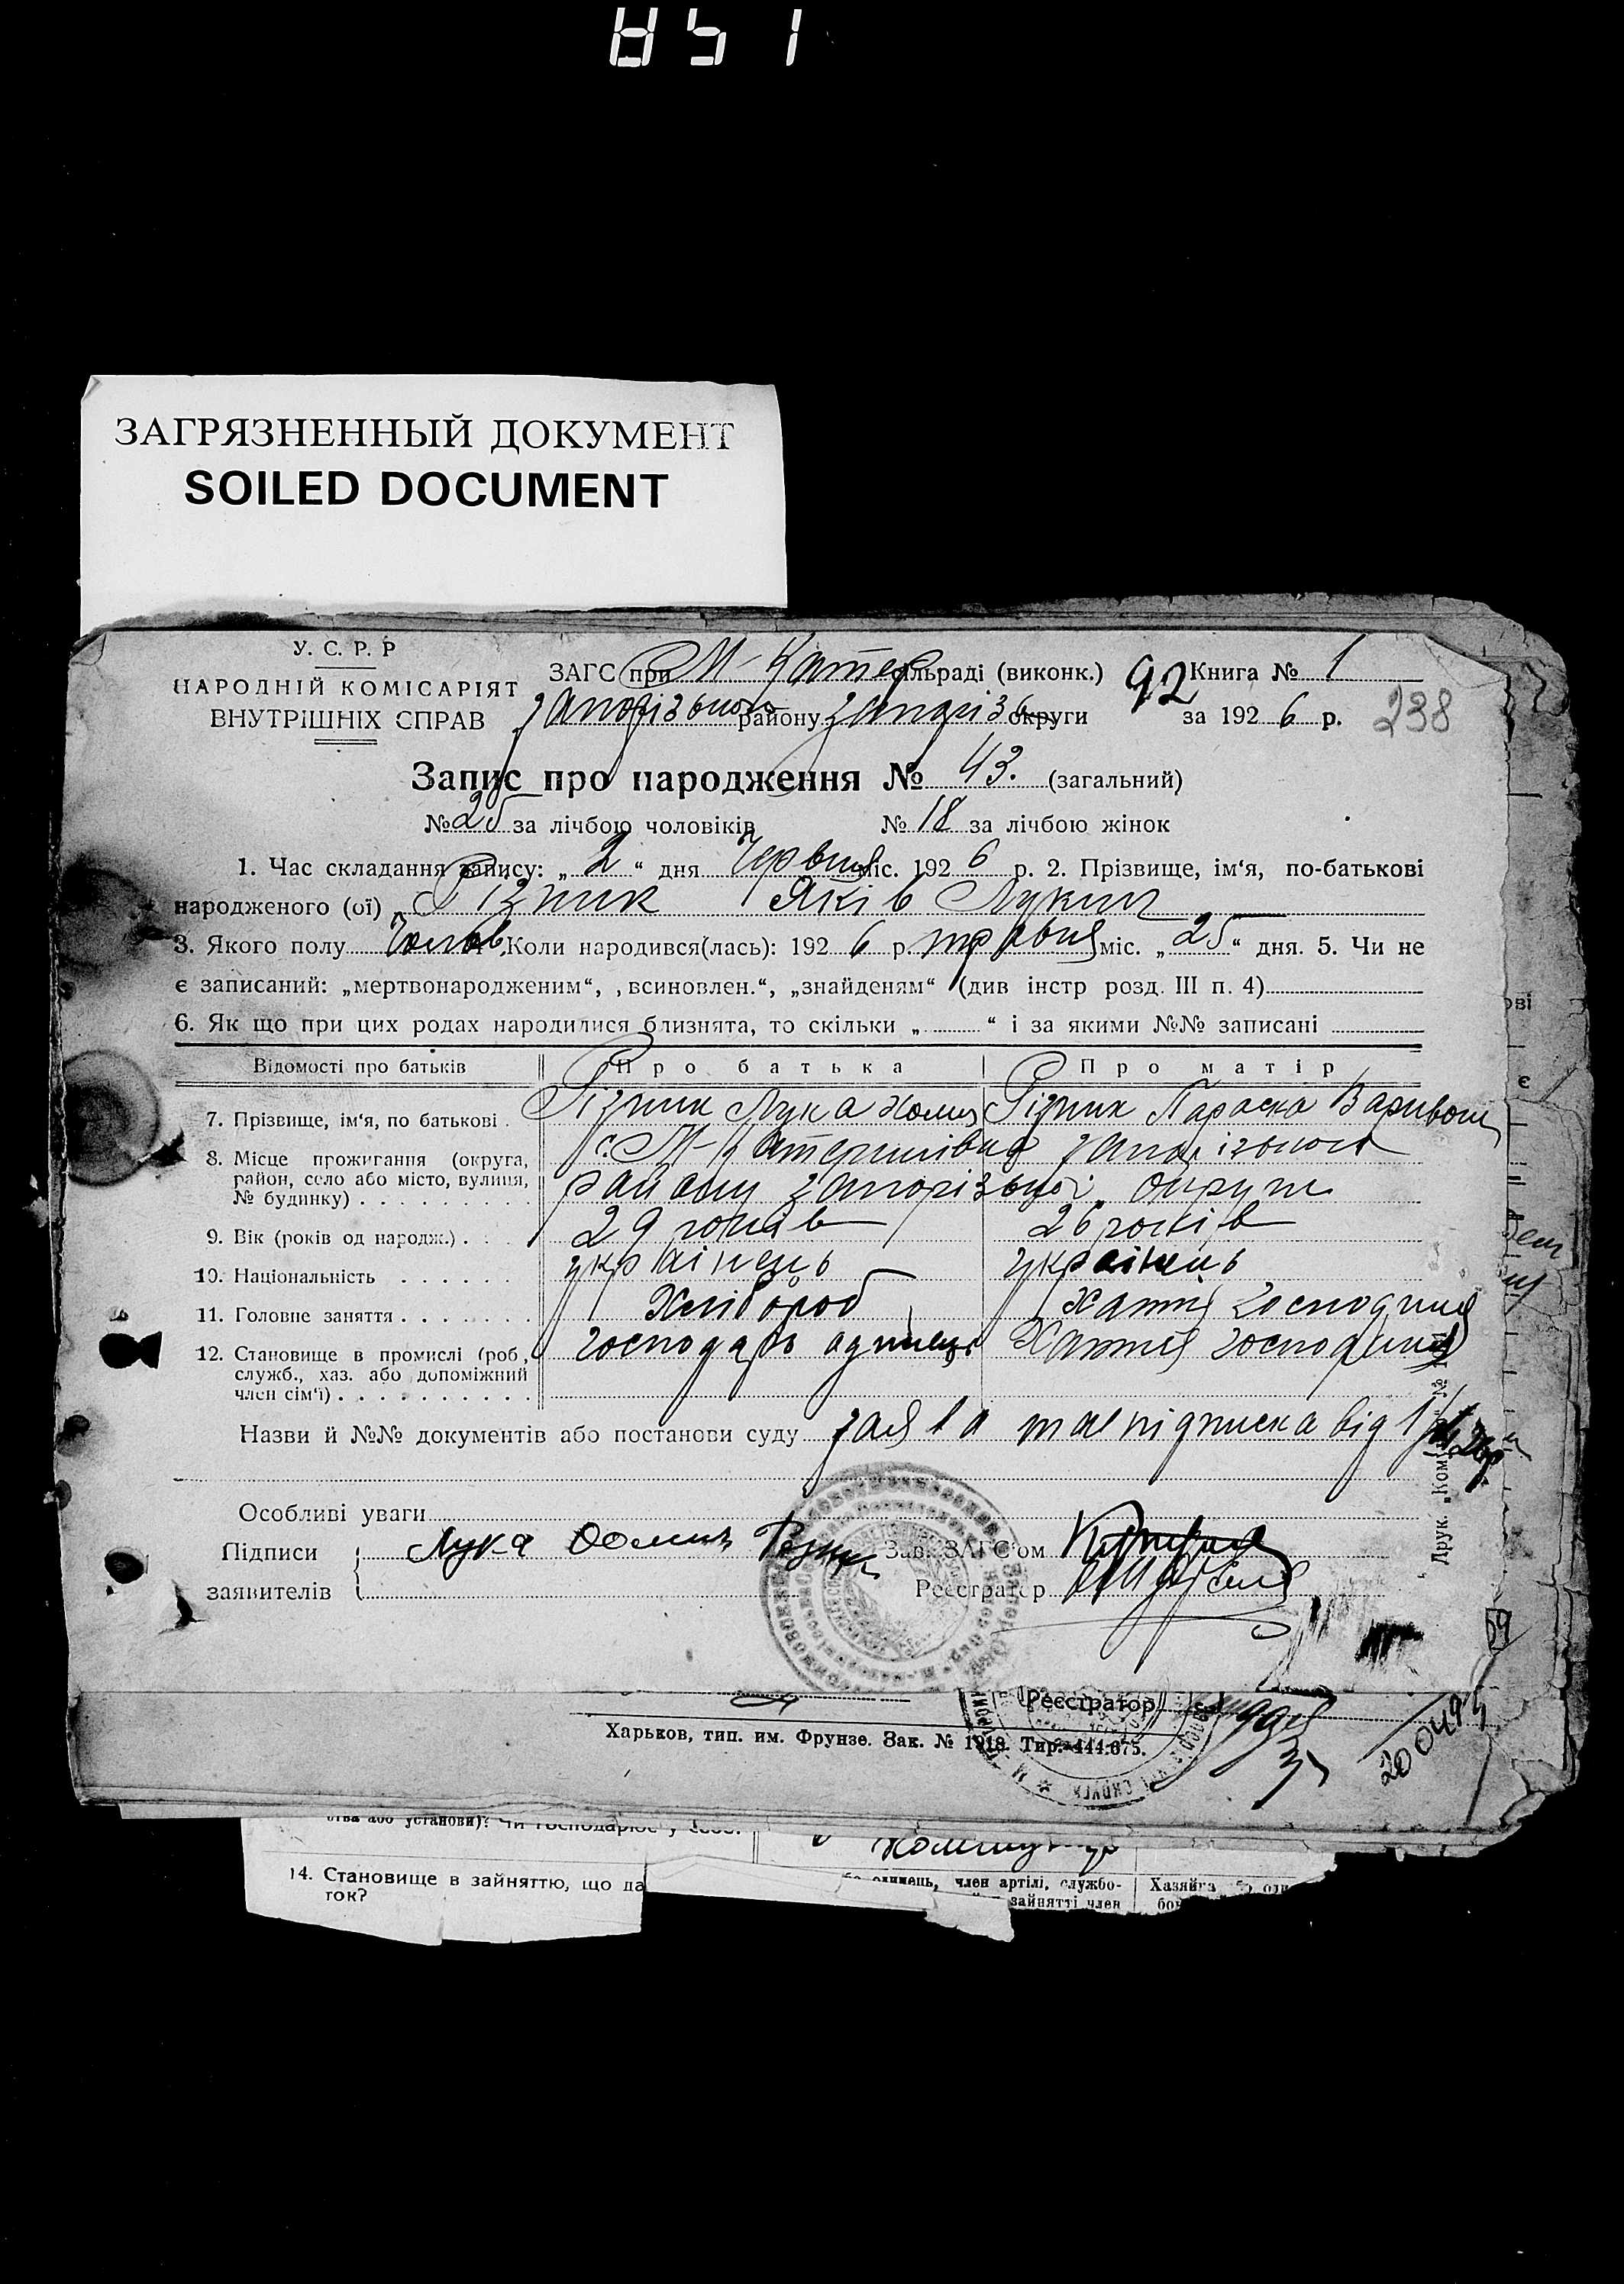 851
ЗАГРЯЗНЕННЫЙ ДОКУМЕНТ
SOILED DOCUMENT
У. С. Р. Р
НАРОДНІЙ КОМІСАРІЯТ
ВНУТРІШНІХ СПРАВ
ЗАГС при М-Катер сільраді (виконк.) 92 Книга № 1
Запорізького району Запоріз округи за 1926 р. 238
Запис про народження № 43. (загальний)
№ 25 за лічбою чоловіків № 18 за лічбою жінок
1. Час складання запису: „2“ дня Червня міс. 1926 р. 2. Прізвище, ім‘я, по-батькові
народженого (ої) Різник Яків Лукич
3. Якого полу Чолов. Коли народився(лась): 1926 р. травня міс. „25“ дня. 5. Чи не
є записаний: „мертвонародженим“, „всиновлен.“, „знайденям“ (див інстр розд. III п. 4)
6. Як що при цих родах народилися близнята, то скільки „ “ і за якими №№ записані
Відомості про батьків Про батька Про матір
7. Прізвище, ім‘я, по батькові . Різник Лука Хомич Різник Параска Варивон
8. Місце прожигання (округа, район, село або місто, вулиця, № будинку) с. М-Катеринівка Запорізького
району Запорізької округи
9. Вік (років од народж.) 29 років 26 років
10. Національність українець українець
11. Головне заняття Хлібороб Хатня господиня
12. Становище в промислі (роб, служб., хаз. або допоміжний член сім‘ї) господарь одинець Хатня господиня
Назви й №№ документів або постанови суду заява та підписка від 1/
Особливі уваги
Підписи заявителів Лука Резник
Зав. ЗАГС‘ом
Реєстратор
Друк. „Ком
Реєстратор
Харьков, тип. им. Фрунзе. Зак. № 1918. Тир. 444.675.
ства або установи)? Чи господарює у
14. Становище в зайняттю, що да
ток?
одинець, член артілі, службо-
зайнятті член
Хазяйка